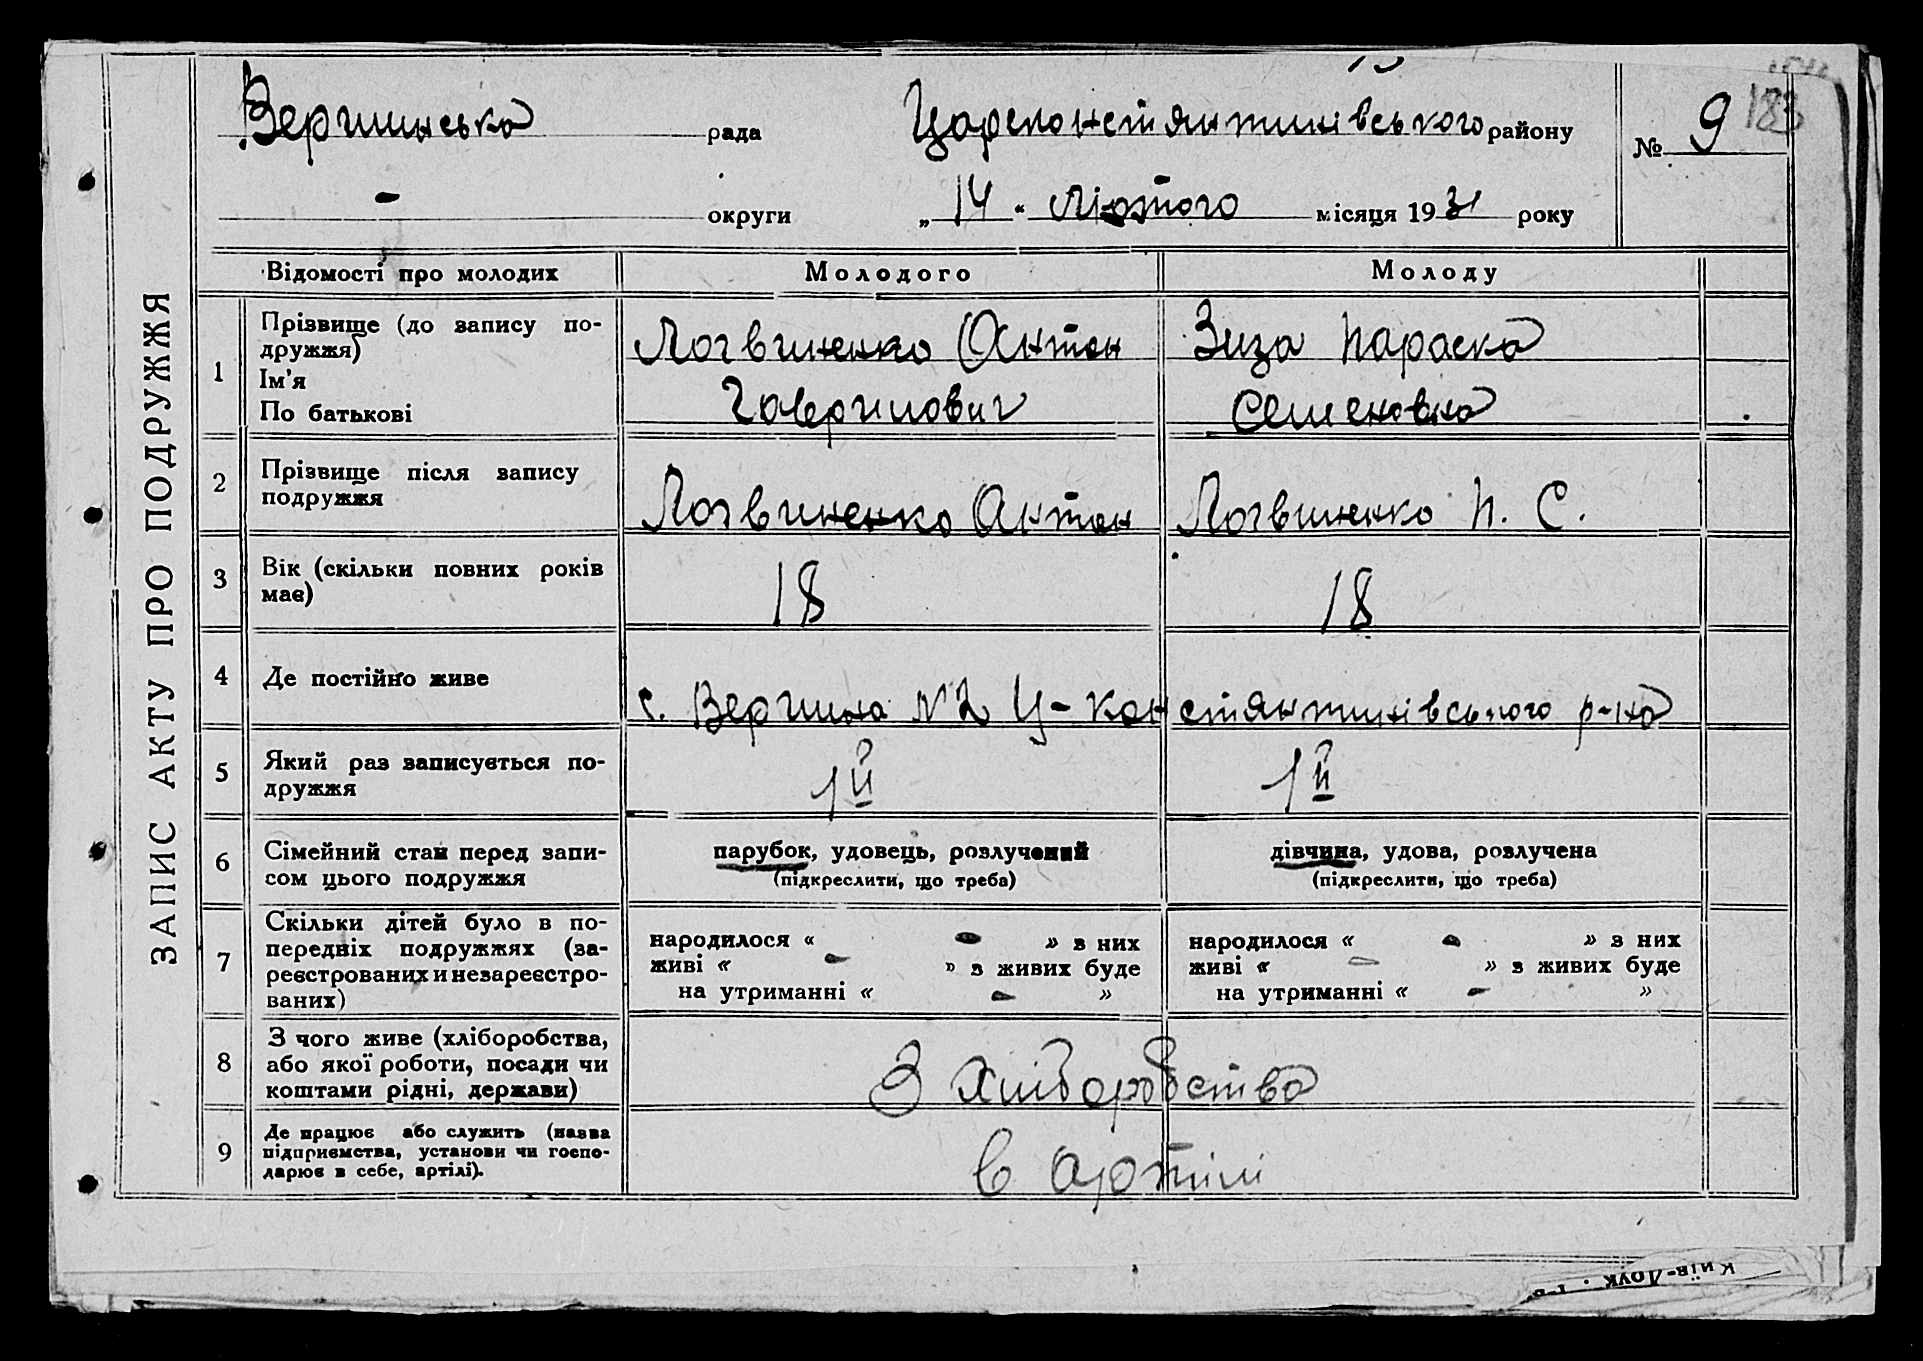 Вершинська рада Царекопстянтинівського району № 9 183
- округи „14“ Лютого місяця 1931 року
ЗАПИС АКТУ ПРО ПОДРУЖЖЯ
Відомості про молодих Молодого Молоду
1 Прізвище (до запису по-
дружжя)
Ім'я
По батькові
Логвиненко Антон
Гаврилович
Зиза Параска
Семеновна
2 Прізвище після запису
подружжя
Логвиненко Антон Логвиненко П. С.
3 Вік (скільки повних років
має)
18 18
4 Де постійно живе
с. Вершина №2 Ц-Констянтинівського р-на
5 Який раз записується по-
дружжя
1й 1й
6 Сімейний стан перед запи-
сом цього подружжя
парубок, удовець, розлучений
(підкреслити, що треба)
дівчина, удова, розлучена
(підкреслити, що треба)
7 Скільки дітей було в по-
передніх подружжях (за-
реєстрованих и незареєстро-
ваних)
народилося « - » з них
живі « - » з живих буде
на утриманні « - »
народилося « - » з них
живі « - » з живих буде
на утриманні « - »
8 З чого живе (хліборобства,
або якої роботи, посади чи
коштами рідні, держави)
З хліборобства
9 Де працює або служить (назва
підприємства, установи чи госпо-
дарює в себе, артілі).
в артілі
Київ-Друк